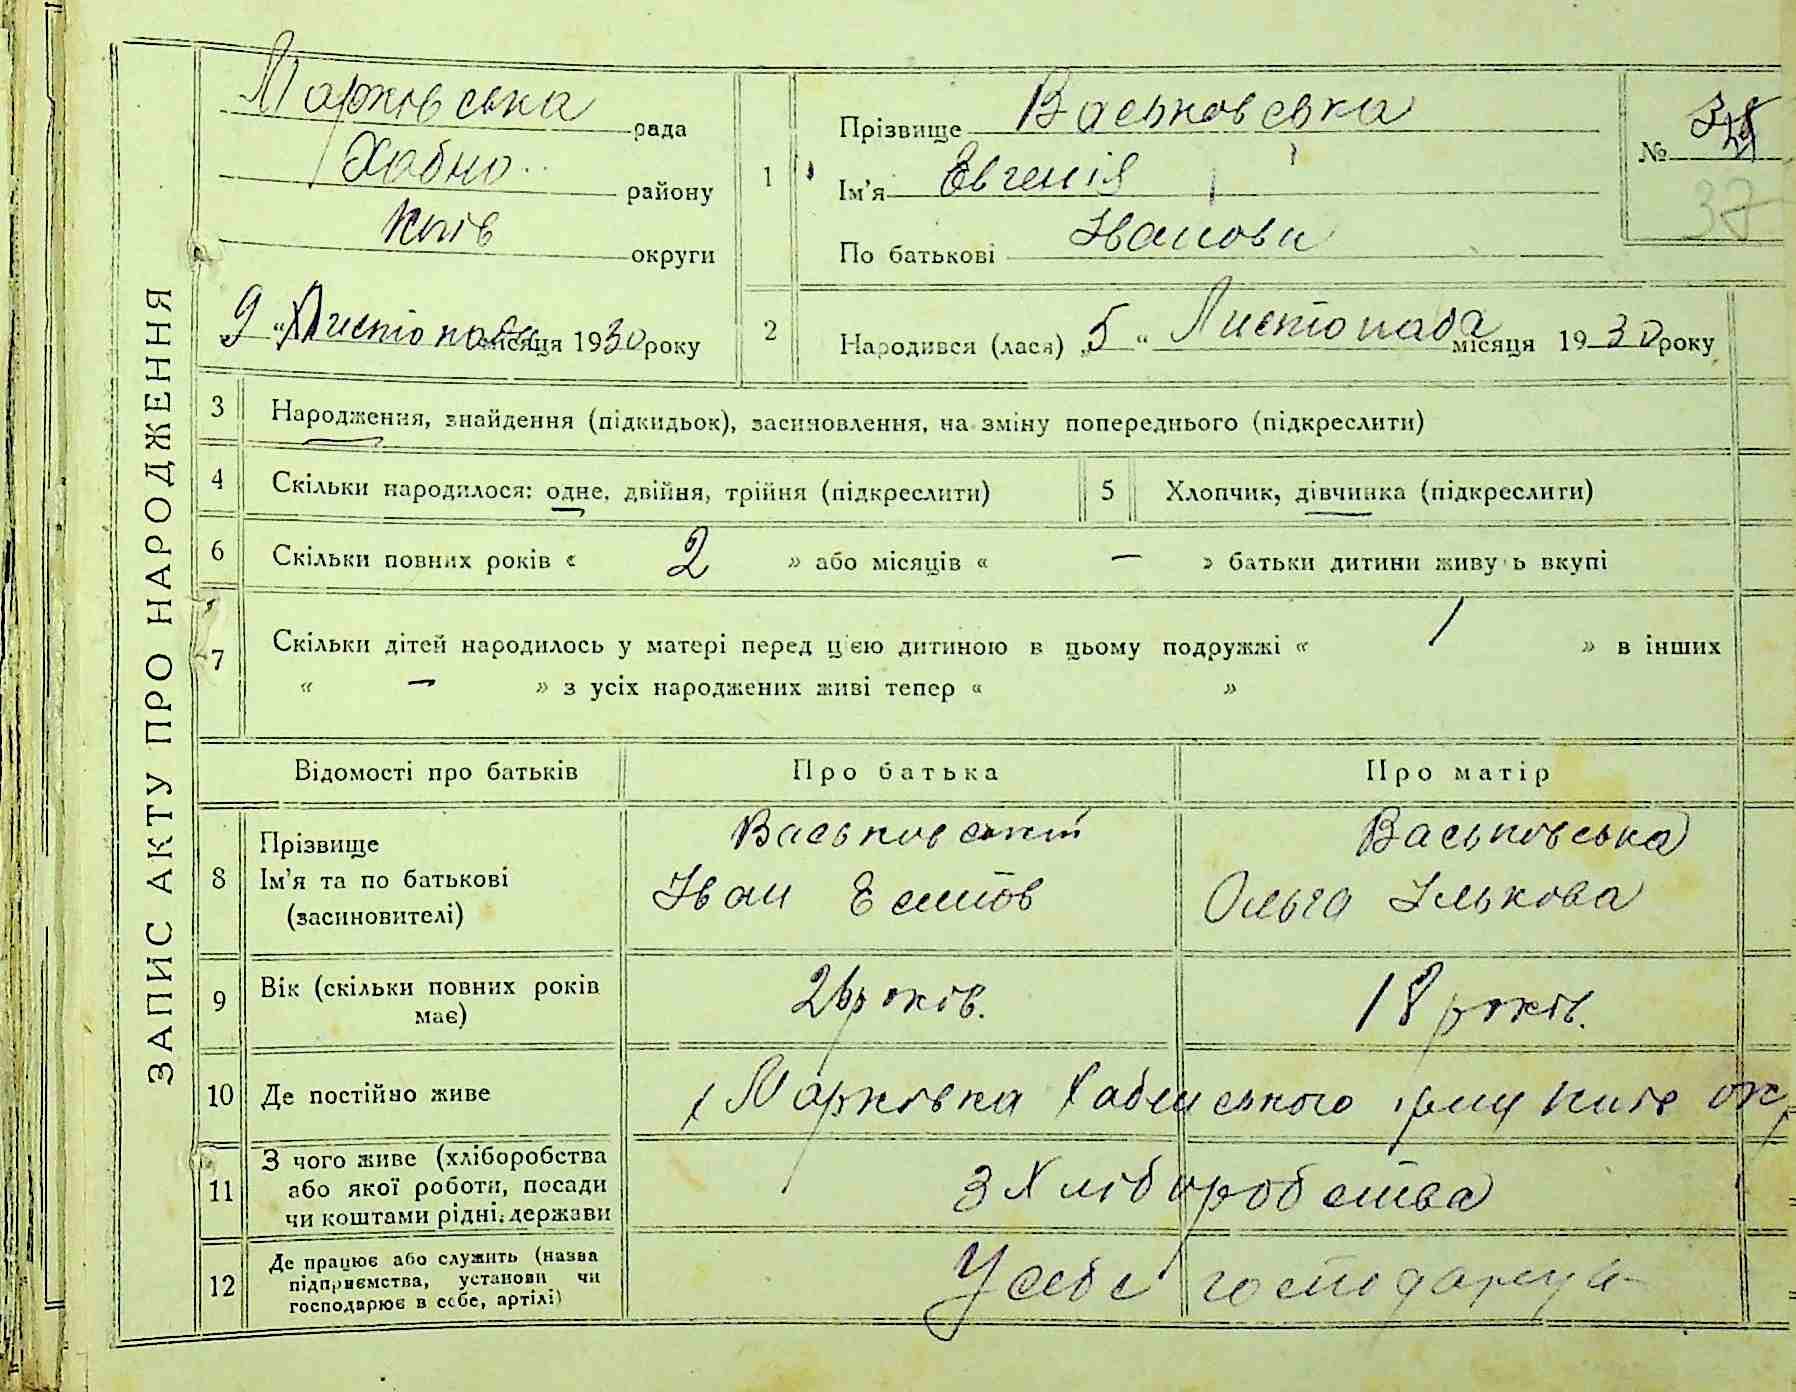 ЗАПИС АКТУ ПРО НАРОДЖЕННЯ
Марківська рада
Хабно району
Київ округи
„9 “ Листопада місяця 1930 року
1
Прізвище Васьковська
Ім'я Євгенія
По батькові Іванови
№
37
2
Народився (лася) „5 “ Листопада місяця 1930 року
3 Народження, знайдення (підкидьок), засиновлення, на зміну попереднього (підкреслити)
4 Скільки народилося: одне, двійня, трійня (підкреслити)
5 Хлопчик, дівчинка (підкреслити)
6 Скільки повних років « 2 » або місяців « — » батьки дитини живу ь вкупі
7 Скільки дітей народилось у матері перед цією дитиною в цьому подружжі « 1 » в інших
« — » з усіх народжених живі тепер « »
Відомості про батьків Про батька Про матір
8
Прізвище
Ім'я та по батькові
(засиновителі)
Васьковський
Іван
Васьковська
Ольга Ількова
9
Вік (скільки повних років
має)
26 років.
18 років.
10 Де постійно живе
Марківка Хабенського Київ ок
11
З чого живе (хліборобства
або якої роботи, посади
чи коштами рідні, держави
З Хліборобства
12
Де працює або служить (назва
підприємства, установи чи
господарює в себе, артілі)
У себе